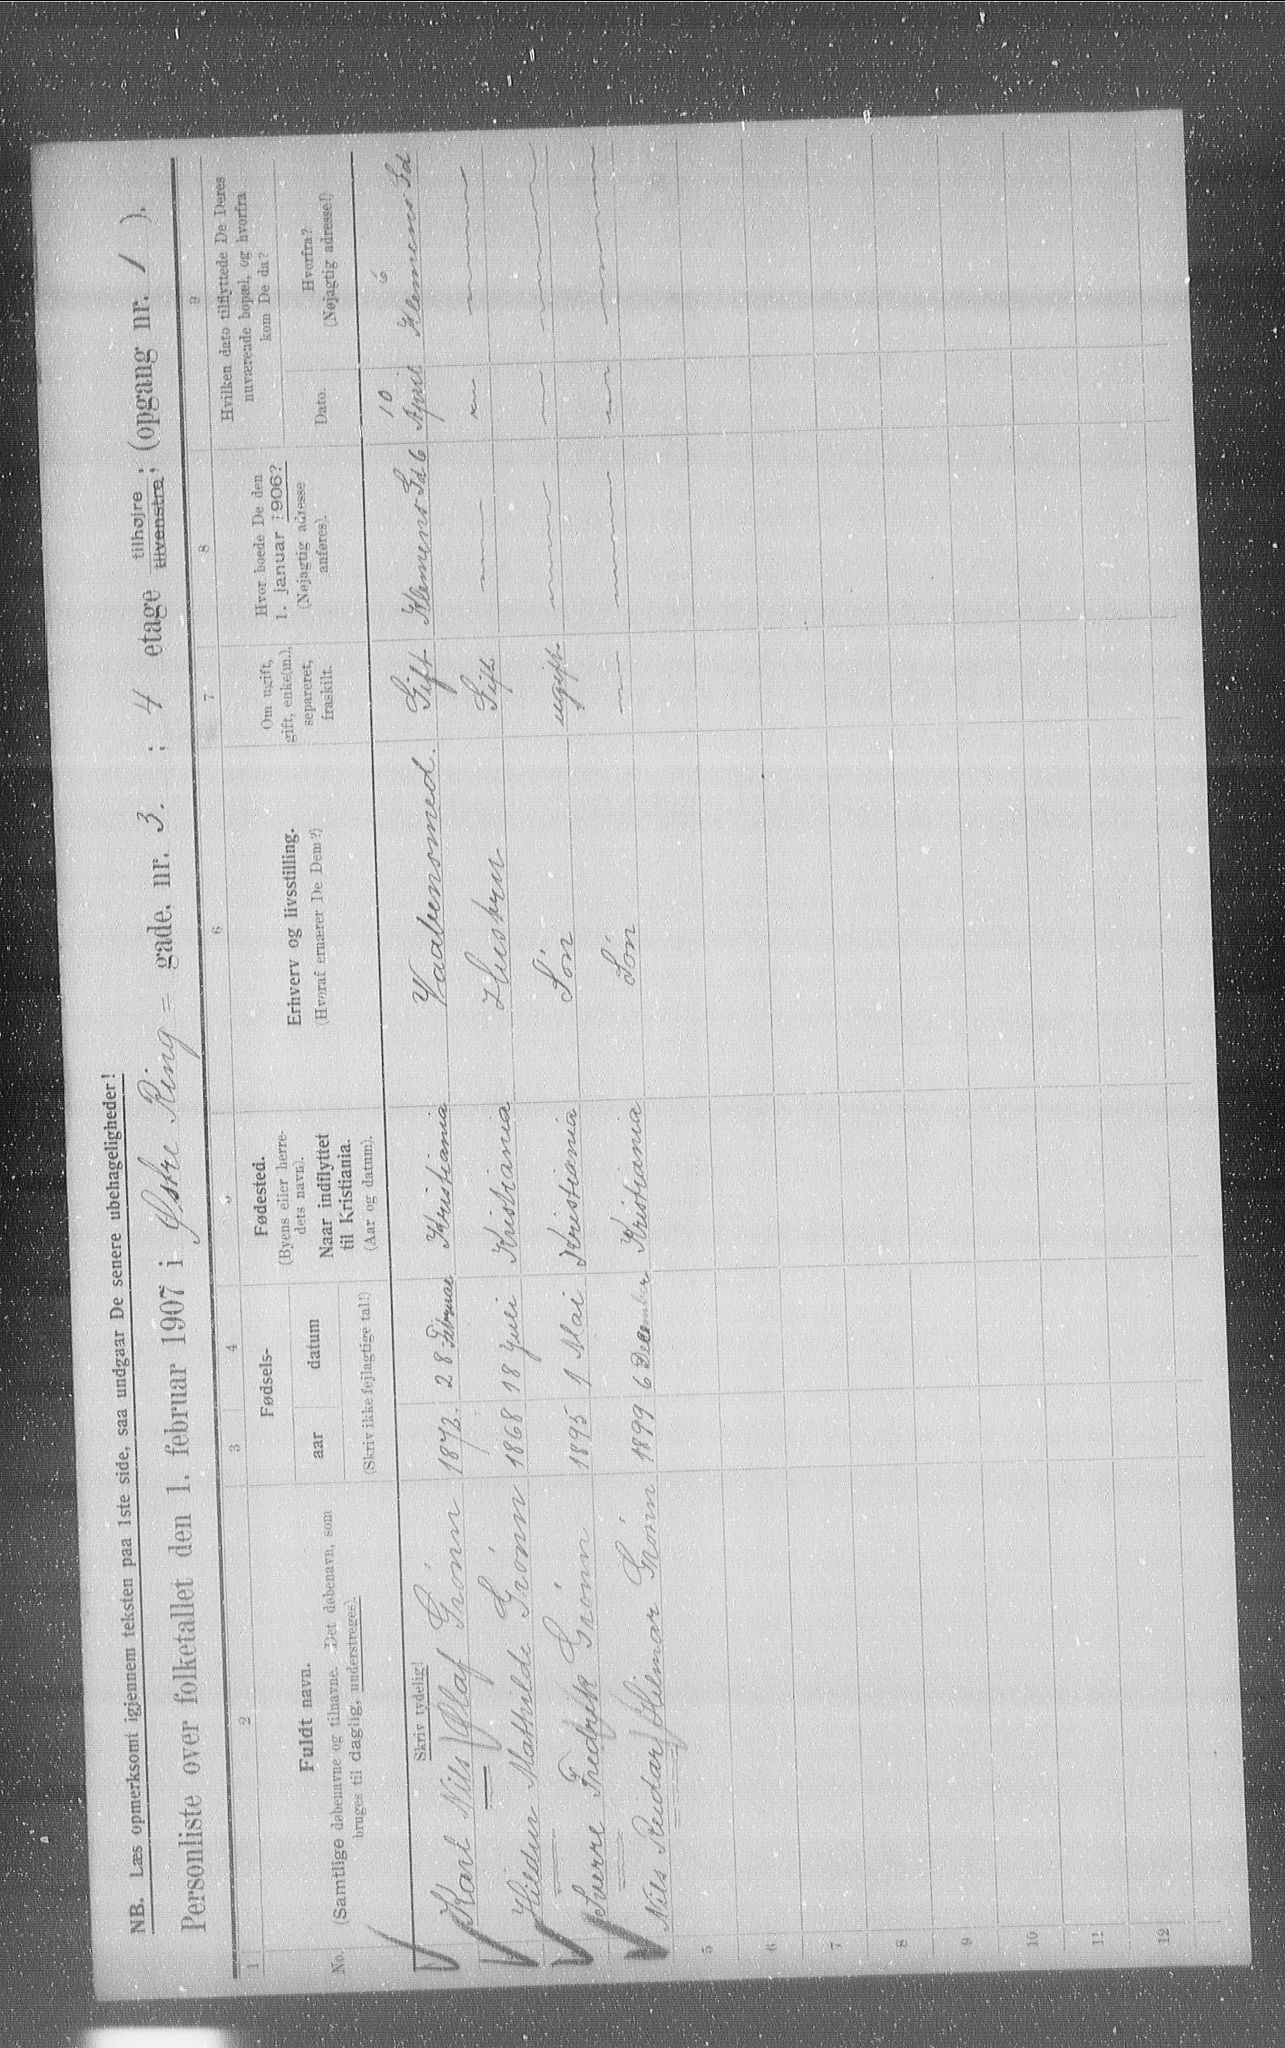 NB. Læs opmerksomt igjennem teksten paa 1ste side, saa undgaar De senere ubehageligheder!
Personliste over folketallet den 1. februar 1907 i Østre Ring = gade, nr. 3. ; 4 etage tilhøjre ; (opgang nr. 1 ).
tilvenstre;
1 2 3 4 6 7 8 9
No. Fuldt navn.
(Samtlige døbenavne og tilnavne. Det døbenavn, som
bruges til daglig, understreges).
Fødsels-
aar datum
(Skriv ikke fejlagtige tal!)
Fødested.
(Byens eller herre-
dets navn).
Naar indflyttet
til Kristiania.
(Aar og datum).
Erhverv og livsstilling.
(Hvoraf ernærer De Dem?)
Om ugift,
gift, enke(m.),
separeret,
fraskilt.
Hvor boede De den
1. januar 1906?
(Nøjagtig adresse
anføres).
Hvilken dato tilflyttede De Deres
nuværende bopæl, og hvorfra
kom De da?
Dato. Hvorfra?
(Nøjagtig adresse!)
Skriv tydelig!
10 6
Karl Nils Olaf Grönn 1872. 28 Februar Kristiania Vaabensmed. Gift Klemens Gd 6 April Klemens Gd
Hildur Mathilde Grönn 1868 18 Juli Kristiania Hustru Gift
Sverre Fredrik Grönn 1895 1 Mai Kristiania Sön ugift
Nils Reidar Hilmar Grönn 1899 6 December Kristiania Sön
5
6
7
8
9
10
11
12